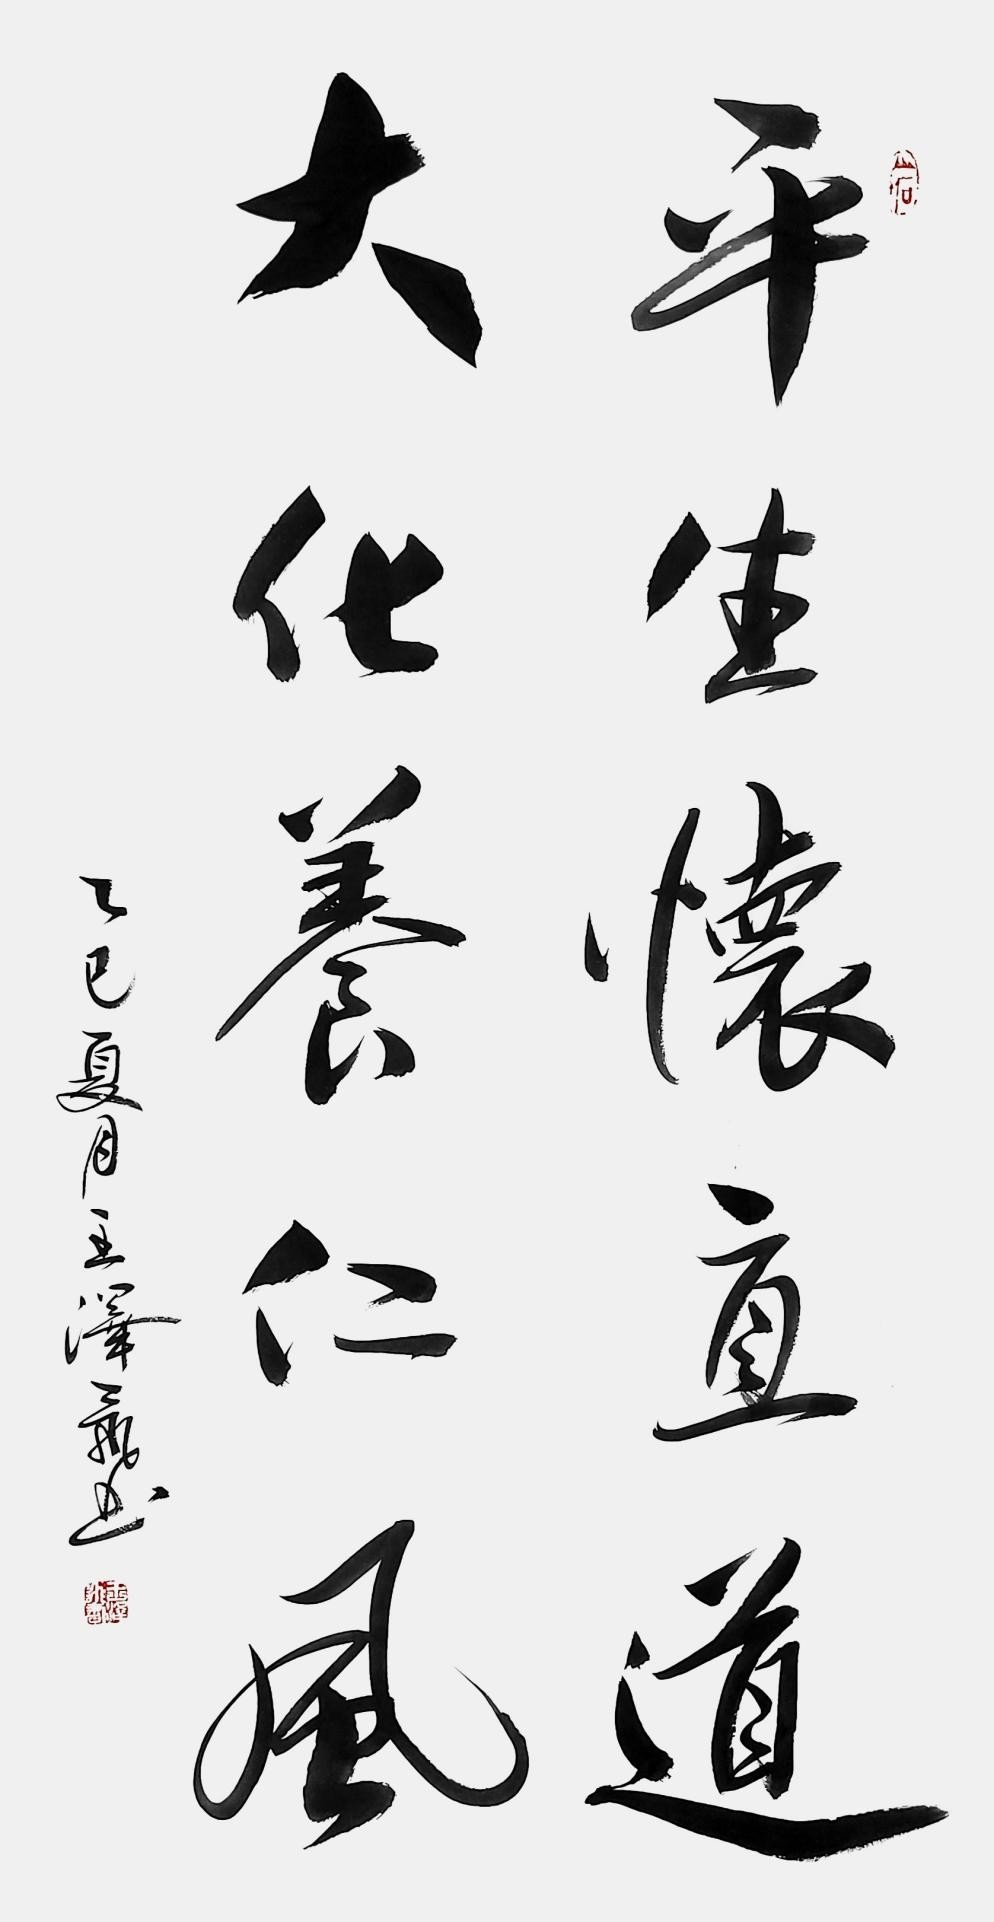 平生懷直道
大化養仁風
乙巳夏月王澤飛书